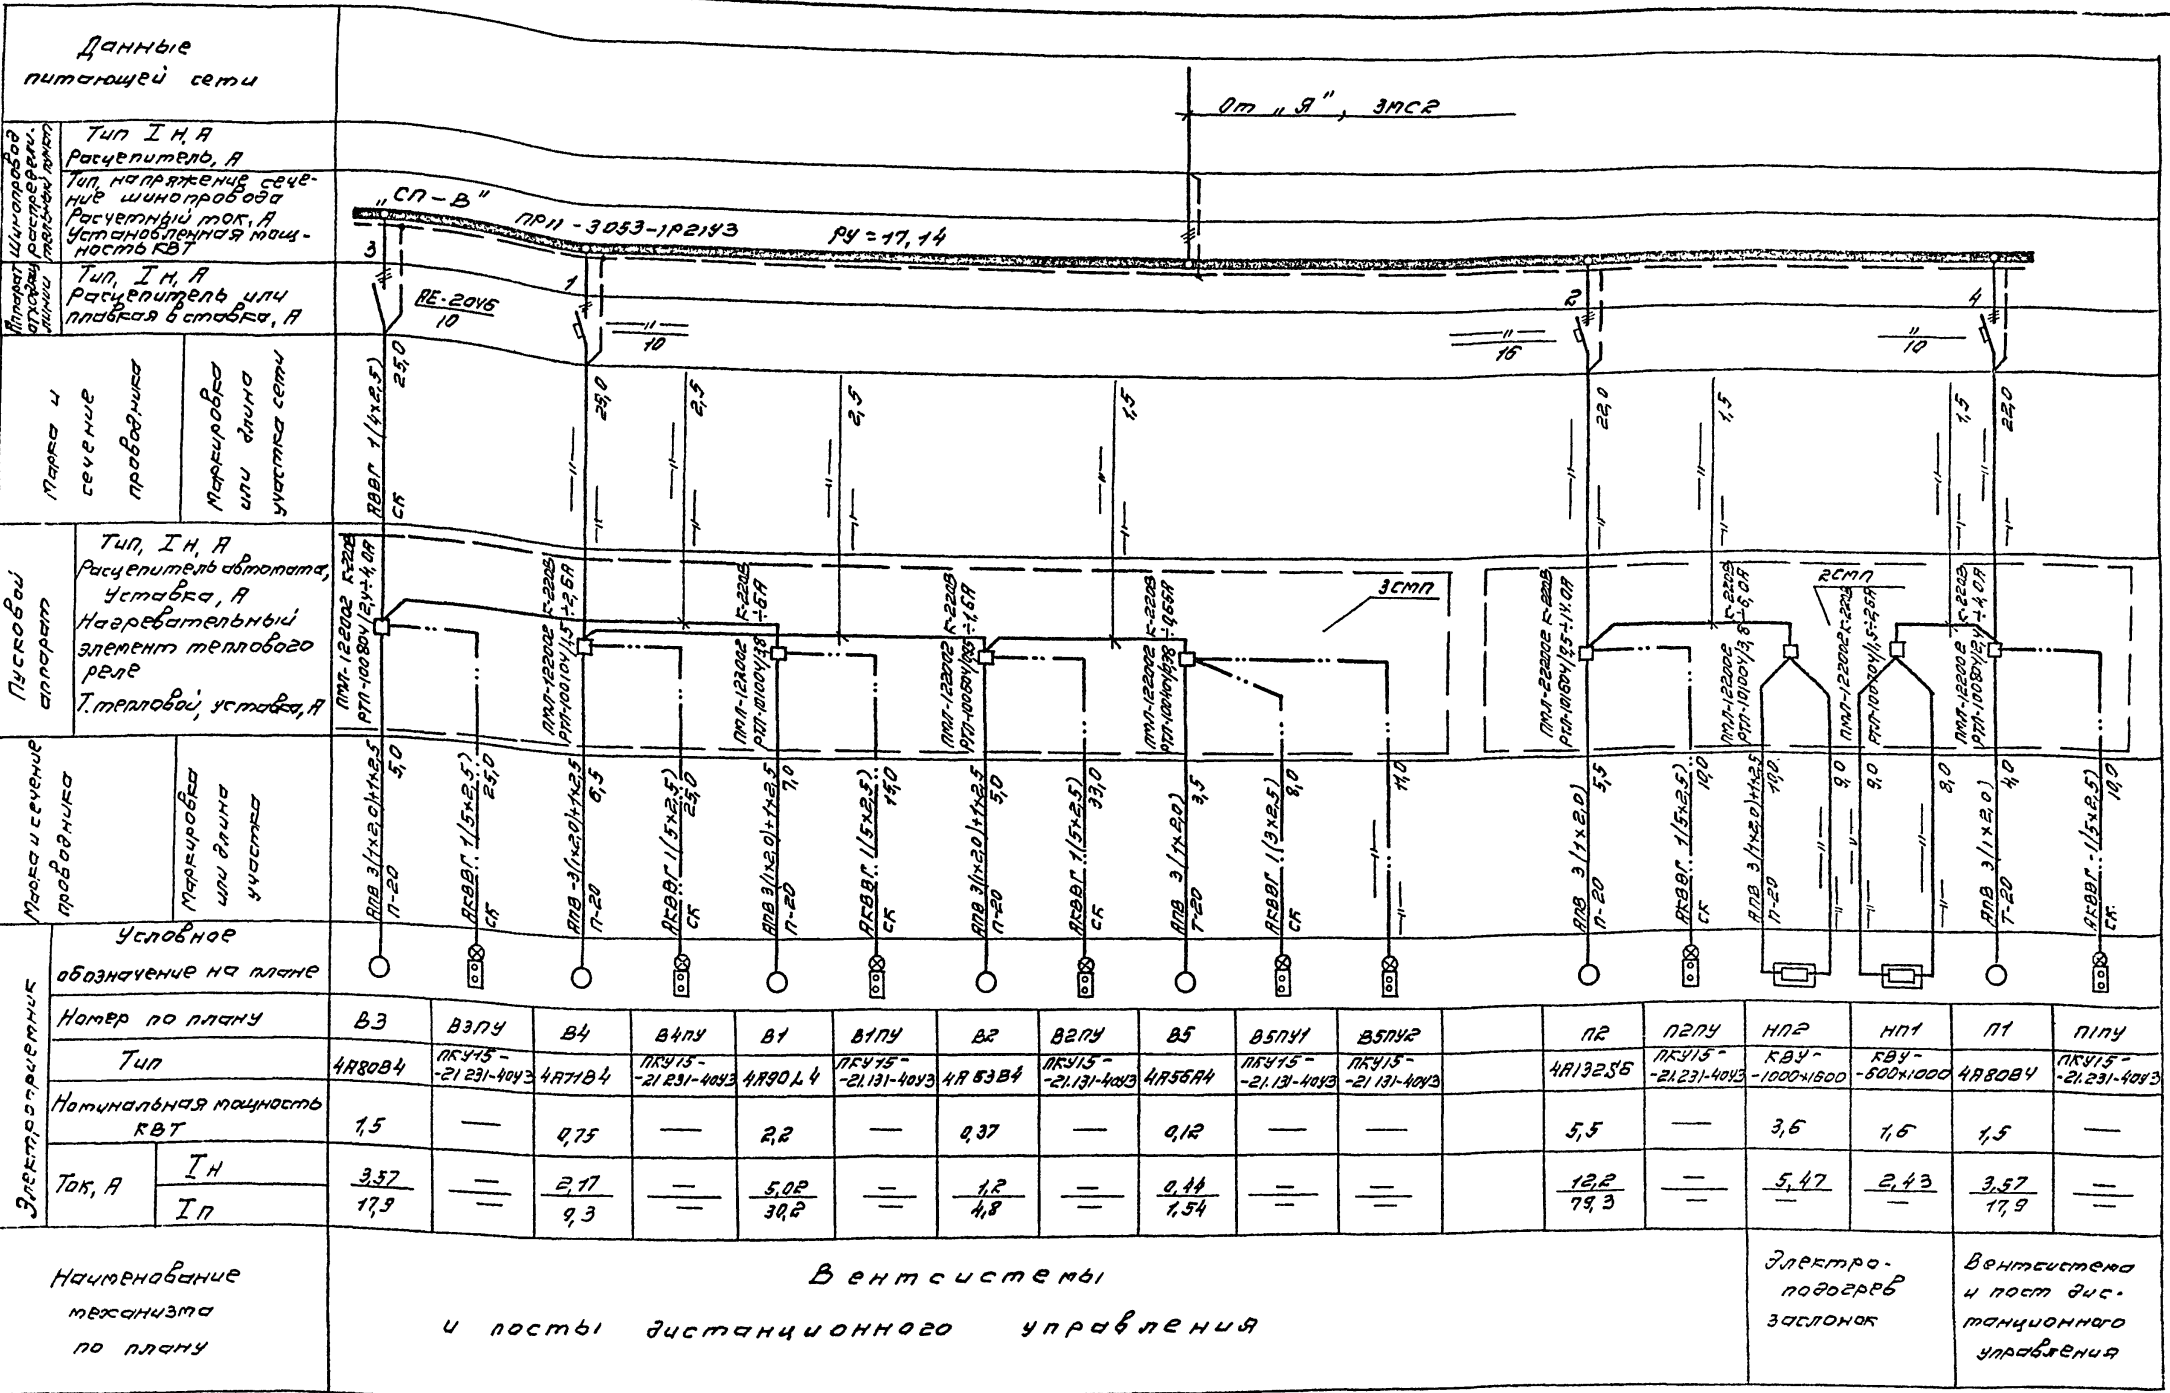 Данные
питающей сети
От „Я”, ЭМС2
Шинопровод
распредели-
тельный пункт
Тип Iн, А
Расцепитель, А
Тип, напряжение сече-
ние шинопровода
Расчетный ток, А
Установленная мощ-
ность кВт
„СП-В”
ПР11-3053-1Р21У3
Ру=17,14
Аппарат
отходящ
линии
Тип, Iн, А
Расцепитель или
плавкая вставка, А
3
АЕ-2046
10
1
—"—
10
2
—"—
16
4
—"—
10
Марка и
сечение
проводника
Маркировка
или длина
участка сети
АВВГ 1(4х2.5)
25,0
СК
—"—
25,0
—"—
—"—
2,5
—"—
—"—
2,5
—"—
—"—
1,5
—"—
—"—
22,0
—"—
—"—
1,5
—"—
—"—
1,5
—"—
—"—
22,0
—"—
Пусковой
аппарат
Тип, Iн, А
Расцепитель автомата,
Уставка, А
Нагревательный
элемент теплового
реле
Т.тепловой, уставка, А
ПМЛ-122002 К-220В
РТЛ-100804/2,4÷4,0А
ПМЛ-122002 К-220В
ПМЛ-122002 К-220В
ПМЛ-122002 К-220В
ПМЛ-122002 К-220В
3СМП
ПМЛ-222002 К-220В
ПМЛ-122002 К-220В
2СМП
ПМЛ-122002 К-220В
ПМЛ-122002 К-220В
РТЛ-100804/2,4÷4,0А
Марка и сечение
проводника
Маркировка
или длина
участка
АПВ 3(1х2,0)+1х2,5
5,0
П-20
АКВВГ 1(5х2,5)
25,0
СК
АПВ-3(1х2,0)+1х2,5
6,5
П-20
АКВВГ 1(5х2,5)
25,0
СК
АПВ 3(1х2,0)+1х2,5
7,0
П-20
АКВВГ 1(5х2,5)
15,0
СК
АПВ 3(1х2,0)+1х2,5
5,0
П-20
АКВВГ 1(5х2,5)
33,0
СК
АПВ 3(1х2,0)
3,5
Т-20
АКВВГ 1(3х2,5)
8,0
СК
—"—
11,0
—"—
АПВ 3(1х2,0)
5,5
П-20
АКВВГ 1(5х2,5)
10,0
СК
АПВ 3(1х2,0)+1х2,5
10,0
П-20
—"—
9,0
—"—
—"—
9,0
—"—
—"—
8,0
—"—
АПВ 3(1х2,0)
4,0
Т-20
АКВВГ-1(5х2,5)
10,0
СК
Электроприемник
Условное
обозначение на плане
Номер по плану
В3 В3ПУ В4 В4ПУ В1 В1ПУ В2 В2ПУ В5 В5ПУ1 В5ПУ2 П2 П2ПУ НП2 НП1 П1 П1ПУ
Тип
4А80В4
ПКУ15-
-21.231-40У3
4А71В4
ПКУ15-
-21.231-40У3
4А90L4
ПКУ15-
-21.131-40У3
4А63В4
ПКУ15-
-21.131-40У3
4А56А4
ПКУ15-
-21.131-40У3
ПКУ15-
-21.131-40У3
4А132S6
ПКУ15-
-21.231-40У3
КВУ-
-1000х1600
КВУ-
-600х1000
4А80В4
ПКУ15-
-21.231-40У3
Номинальная мощность
кВт
1,5 — 0,75 — 2,2 — 0,37 — 0,12 — — 5,5 — 3,6 1,6 1,5 —
Ток, А
Iн
3,57 — 2,17 — 5,02 — 1,2 — 0,44 — — 12,2 — 5,47 2,43 3,57 —
Iп
17,9 — 9,3 — 30,2 — 4,8 — 1.54 — — 79,3 — — — 17,9 —
Наименование
механизма
по плану
Вентсистемы
и посты дистанционного управления
Электро-
подогрев
заслонок
Вентсистема
и пост дис-
танционного
управления